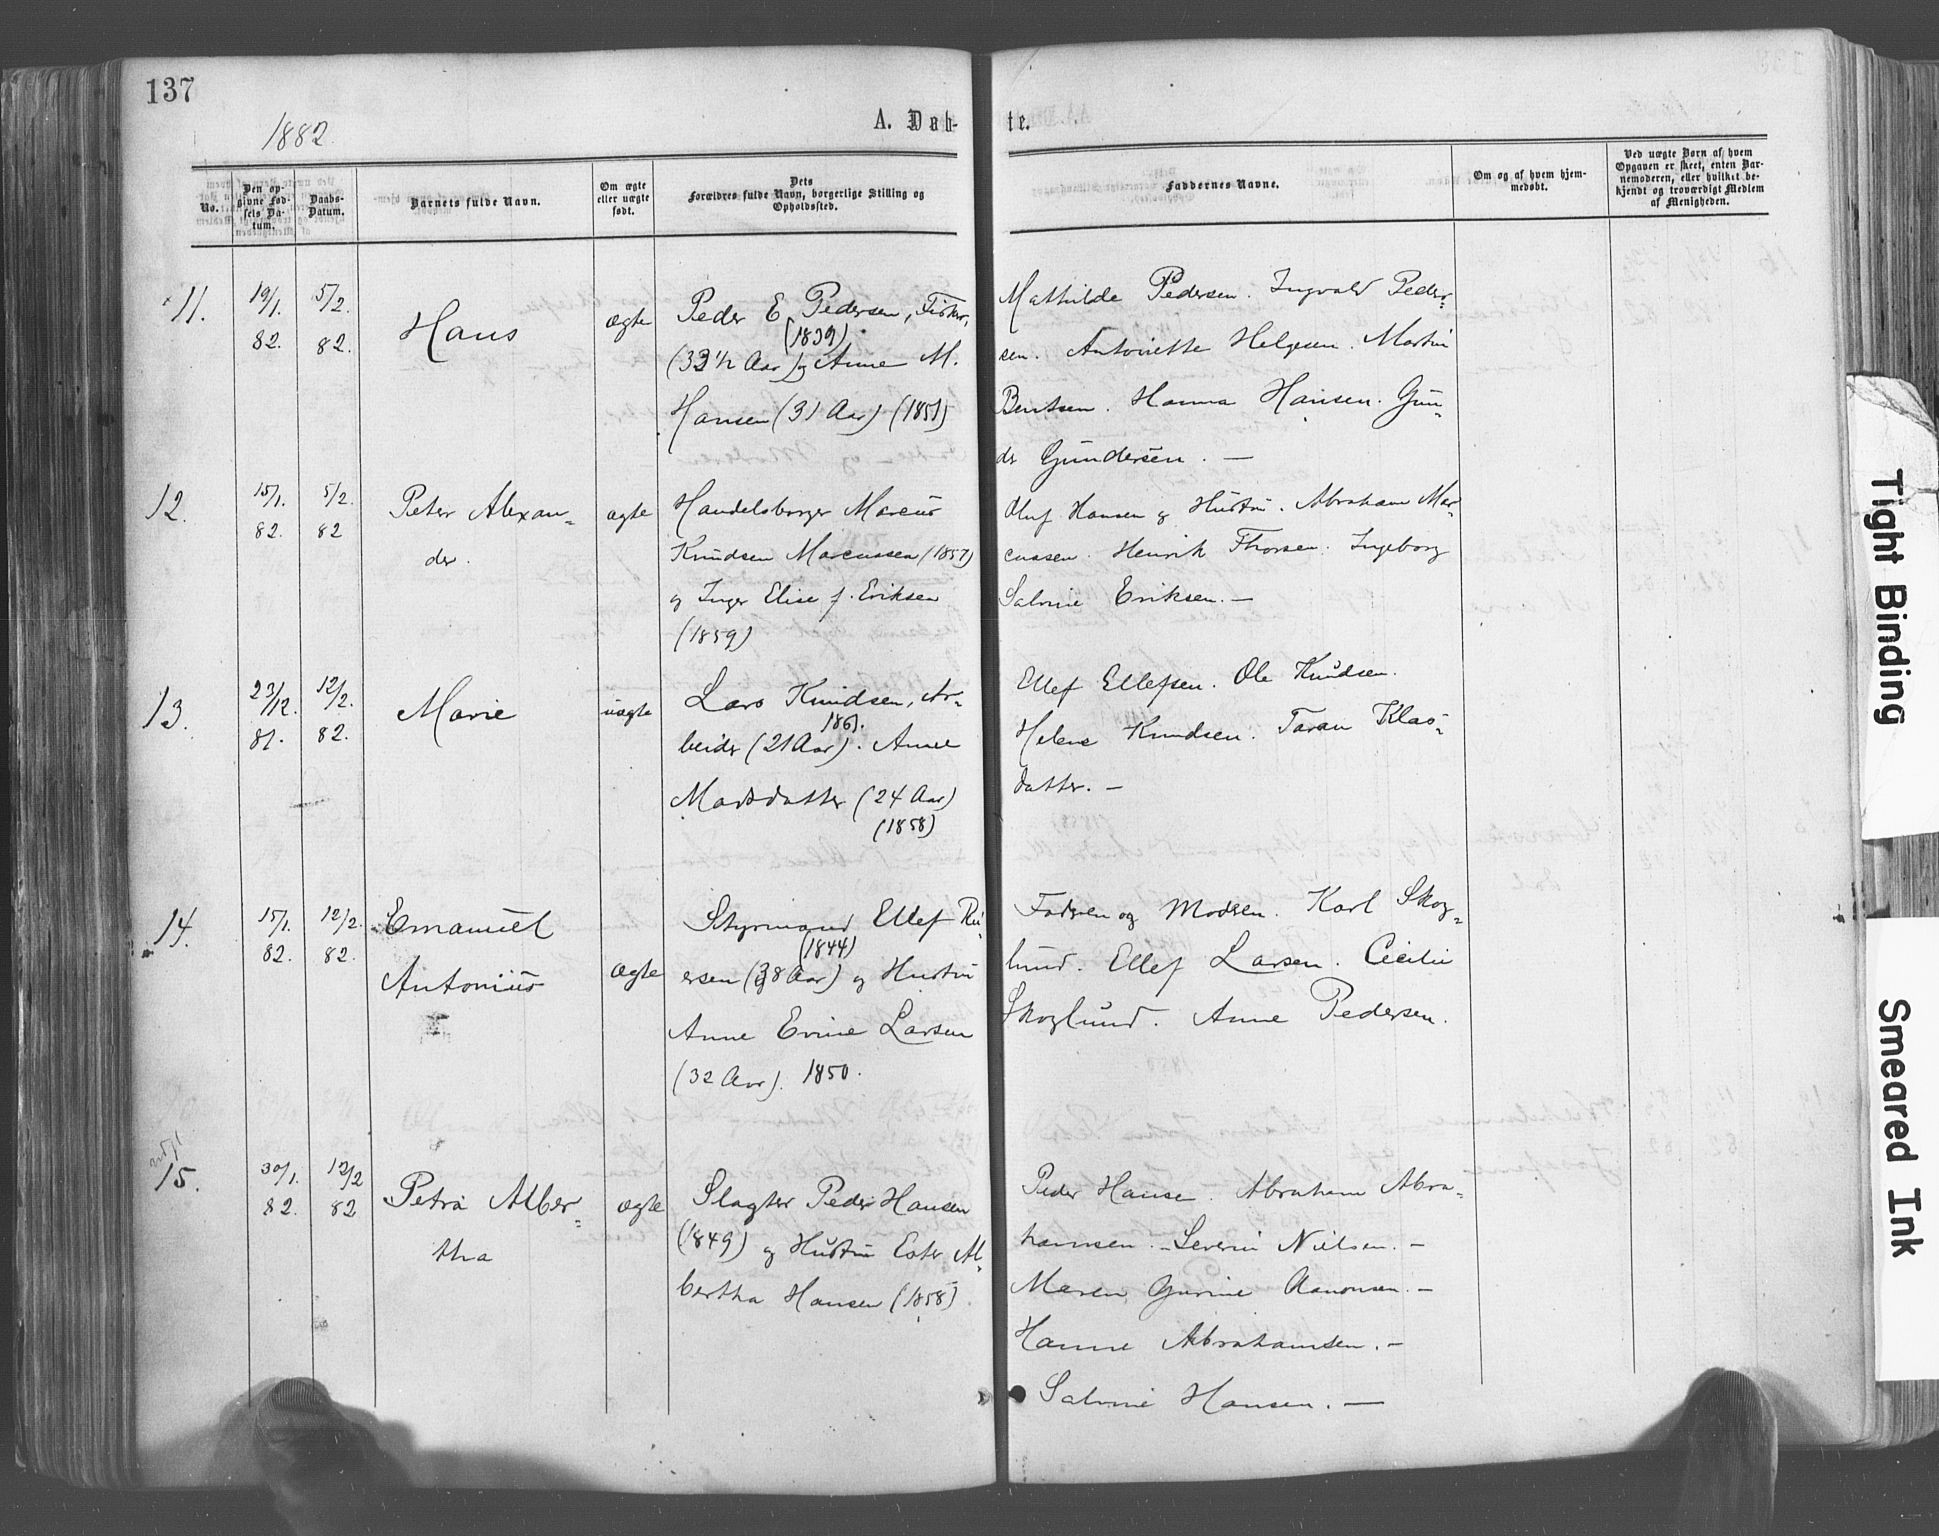 137
1882
A. Døb-
te.
No.
Den op-
givne Fød-
sels Da-
tum.
Daabs-
Datum.
Barnets fulde Navn.
Om ægte
eller uægte
født.
Dets
Forældres fulde Navn, borgerlige Stilling og
Opholdssted.
Faddernes Navne.
Om og af hvem hjem-
medøbt.
Ved uægte Børn af hvem
Opgaven er skeet, enten Bar-
nemoderen, eller hvilket be-
kjendt og troværdigt Medlem
af Menigheden.
11.
19/1.
82.
5/2.
82.
Hans
ægte
Peder E. Pedersen, Fisker,
(1839)
(32 1/2 Aar) og Anne M.
Hansen (31 Aar) (1851)
Mathilde Pedersen. Ingvald Peder-
sen. Antoinette Helgesen. Martin
Bentsen. Hanna Hansen. Gun-
der Gundersen. —
12.
15/1.
82.
5/2.
82
Peter Alexan-
der.
ægte
Handelsborger Marcus
Knudsen Marcussen (1857)
og Inger Elise f. Eriksen
(1859)
Oluf Hansen og Hustru. Abraham Mar-
cussen. Henrik Thorsen. Ingeborg
Salvine Eriksen. —
13.
23/12.
81.
12/2.
82.
Marie
uægte
Lars Knudsen, Ar-
1861.
beider (21 Aar). Anne
Madsdatter (24 Aar)
(1858)
Ellef Ellefsen. Ole Knudsen.
Helene Knudsen. Taran Klas-
datter. —
14.
15/1.
82.
12/2.
82.
Emanuel
Antonius
ægte
Styrmand Ellef Rei-
(1844)
ersen (38 Aar) og Hustru
Anne Evine Larsen
(32 Aar). 1850.
Faderen og Moderen. Karl Skog-
lund. Ellef Larsen. Cecilie
Skoglund. Anne Pedersen.
15.
30/1.
82.
12/2
82
Petra Alber-
tha
ægte
Slagter Peder Hansen
(1849) og Hustru Ester Al-
bertha Hansen (1858).
Peder Hansen. Abraham Abra-
hamsen. — Severin Nielsen. —
Maren Gurine Aanonsen. —
Hanne Abrahamsen. —
Salvine Hansen. —
Tight Binding
Smeared Ink